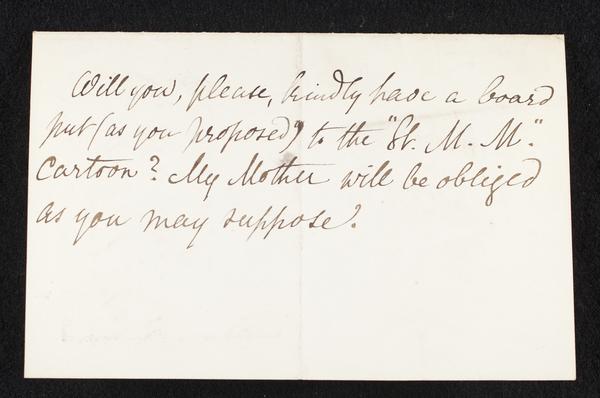 Will you, please, kindly have a board
put (as you proposed) to the "St. M. M."
Cartoon? My Mother will be obliged
as you may suppose.